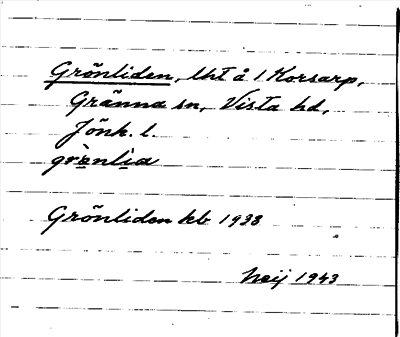 Grönliden, lht å 1 Korsarp,
Gränna sn, Vista hd,
Jönk. l.
Grönliden kb 1933
1943